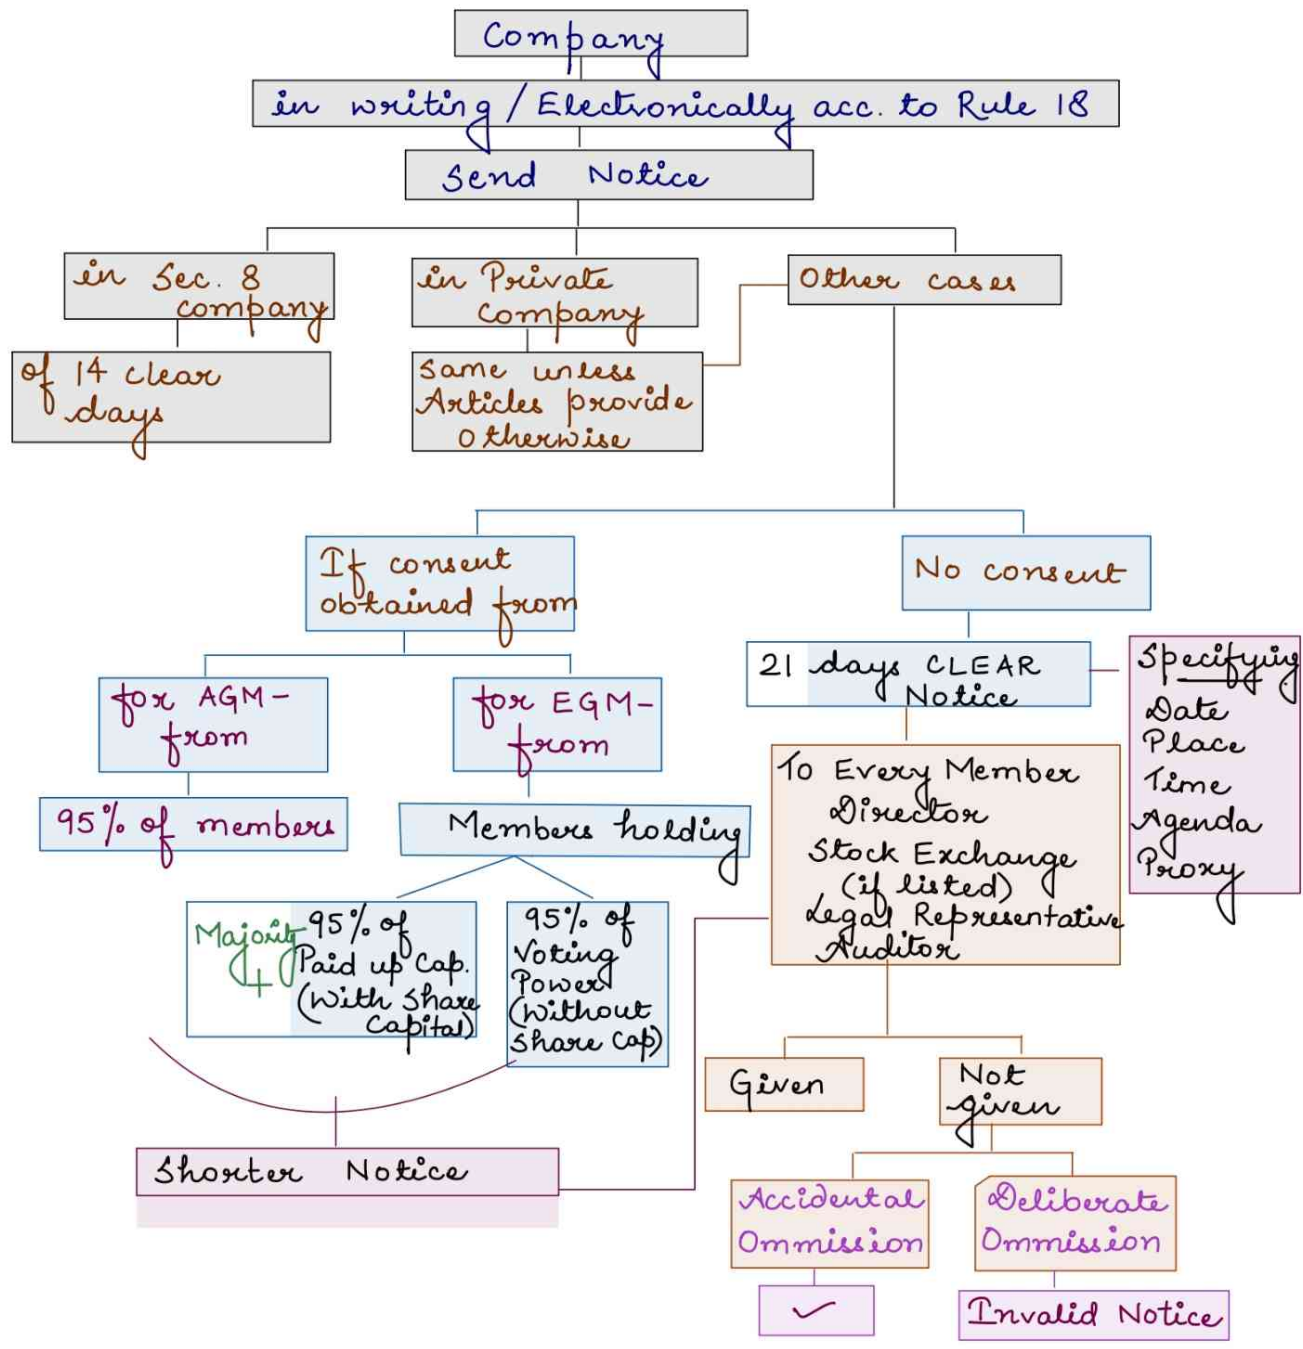 Company
in writing / Electronically acc. to Rule 18
Send Notice
in Sec. 8
company
of 14 clear
days
in Private
company
Same unless
Articles provide
otherwise
Other cases
If consent
obtained from
No consent
for AGM-
from
95% of members
for EGM-
from
Members holding
Majority
+
95% of
Paid up Cap.
(With Share
Capital)
95% of
Voting
Power
(Without
Share Cap)
Shorter Notice
21 days CLEAR
Notice
Specifying
Date
Place
Time
Agenda
Proxy
To Every Member
Director
Stock Exchange
(if listed)
Legal Representative
Auditor
Given
Not
given
Accidental
Ommission
✓
Deliberate
Ommission
Invalid Notice